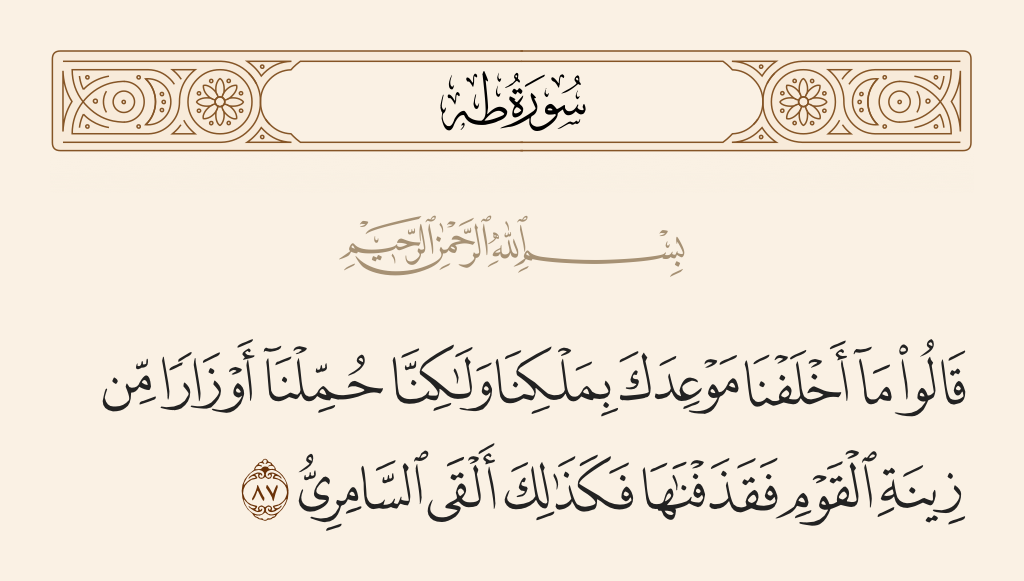 سُورَةُ طه
بِسْمِ ٱللَّهِ ٱلرَّحْمَٰنِ ٱلرَّحِيمِ
قَالُوا۟ مَآ أَخْلَفْنَا مَوْعِدَكَ بِمَلْكِنَا وَلَٰكِنَّا حُمِّلْنَآ أَوْزَارًا مِّن
زِينَةِ ٱلْقَوْمِ فَقَذَفْنَٰهَا فَكَذَٰلِكَ أَلْقَى ٱلسَّامِرِىُّ ٨٧